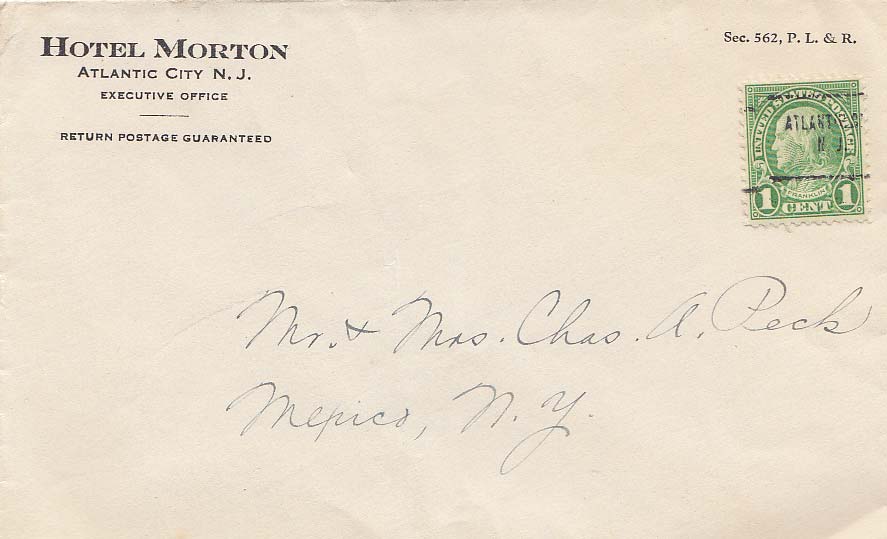 HOTEL MORTON
ATLANTIC CITY N. J.
EXECUTIVE OFFICE
RETURN POSTAGE GUARANTEED
Sec. 562, P. L. & R.
UNITED STATES POSTAGE
ATLANT
N. J.
FRANKLIN
1 CENT 1
Mr. & Mrs. Chas. A. Peck
Mexico, N. Y.